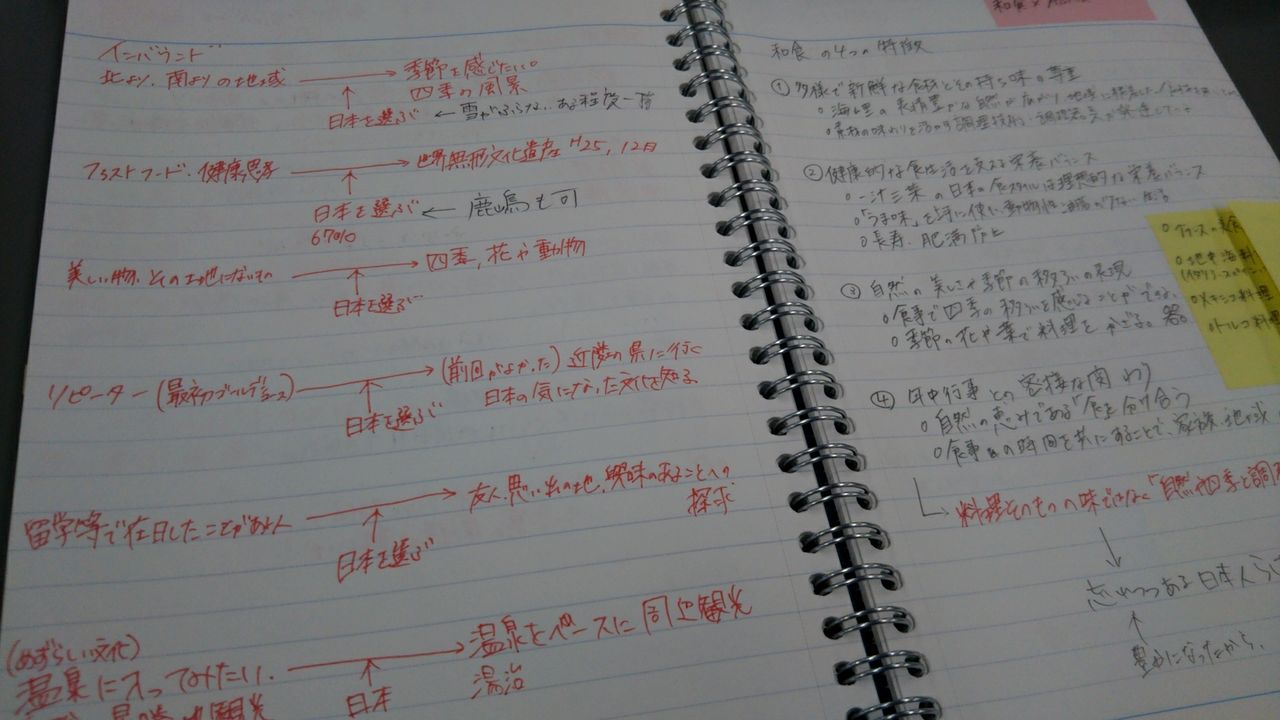 インバウンド
北より、南よりの地域 → 季節を感じたい。
四季の風景
↑
日本を選ぶ ← 雪がふらない、ある程度一
ファストフード・健康思考 → 世界無形文化遺産 H25, 12月
↑
日本を選ぶ ← 鹿嶋も可
67%
美しい物、その土地にないもの → 四季, 花や動物
↑
日本を選ぶ
リピーター (最初ゴールデンコース) → (前回がよかった) 近隣の県に行く
日本の気になった文化を知る
↑
日本を選ぶ
留学等で在日したことがある人 → 友人、思い出の地、興味のあることへの
探求
↑
日本を選ぶ
(めずらしい文化)
温泉に入ってみたい. → 温泉をベースに周辺観光
湯治
↑
日本
観光
和食
和食の4つの特徴
① 多様で新鮮な食材とその持ち味の尊重
○ 海山里の表情豊かな自然が広がり、地域に
○ 素材の味わいを活かす調理技術・調理道具が発達して
② 健康的な食生活を支える栄養バランス
○ 一汁三菜の日本の食スタイルは理想的な栄養バランス
○ 「うま味」を上手に使い動物性油脂が少ない
○ 長寿、肥満防止
③ 自然の美しさや季節の移ろいの表現
○ 食事で四季の移ろいを感じることができる。
○ 季節の花や葉で料理をかざる。器。
④ 年中行事との密接な関わり
○ 自然の恵みである「食」を分け合う
○ 食事の時間を共にすることで、家族、地域
料理そのものの味ではなく「自然、四季と調
↓
忘れつつある日本人
↑
豊かになったから、
○ フランスの美食
○ 地中海料
○ メキシコ料理
○ トルコ料理